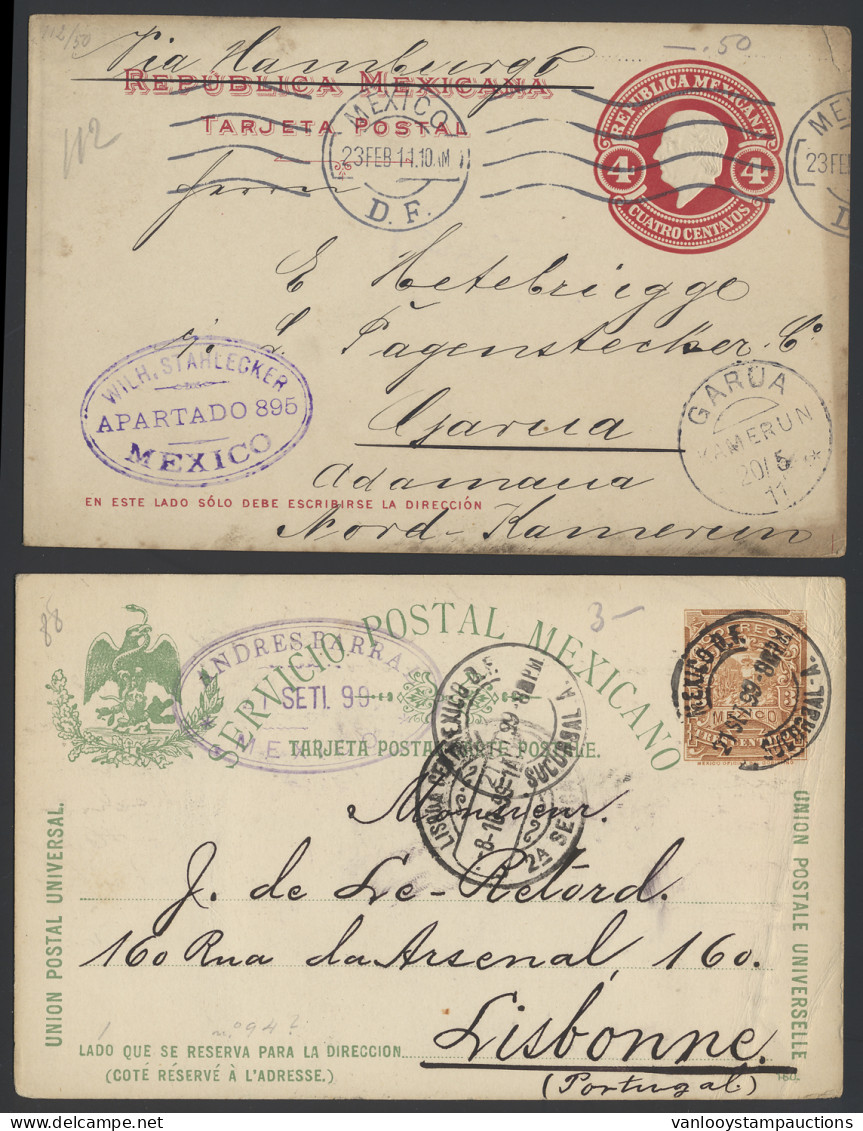 112/50
—.50
Via Hamburgo
REPÚBLICA MEXICANA
TARJETA POSTAL
112
MEXICO
23 FEB 11.10 AM
D. F.
REPUBLICA MEXICANA
4 4
CUATRO CENTAVOS
ME
23 FEB
D
Herrn
E Hetebrügge
L. Pagenstecher Co
Garua
Adamaua
Nord-Kamerun
WILH. STAHLECKER
APARTADO 895
MEXICO
GARUA
KAMERUN
20/5
11
EN ESTE LADO SÓLO DEBE ESCRIBIRSE LA DIRECCIÓN
88
3-
SERVICIO POSTAL MEXICANO
ANDRES BARRA
SETI. 99
MEXICO
TARJETA POSTAL
POSTALE.
MEXICO D.F.
99
SUCURSAL A.
LISBOA CENTRAL
8-10 99
2A SEC
CORREO
MEXICO
MEXICO D.F.
99
SUCURSAL A.
Monsieur.
J. de Le-Retord.
160 Rua da Arsenal, 160.
Lisbonne.
(Portugal)
UNION POSTAL UNIVERSAL.
UNION POSTALE UNIVERSELLE
nº 94?
LADO QUE SE RESERVA PARA LA DIRECCION
(COTÉ RÉSERVÉ À L'ADRESSE.)
160.
vanlooystampauctions